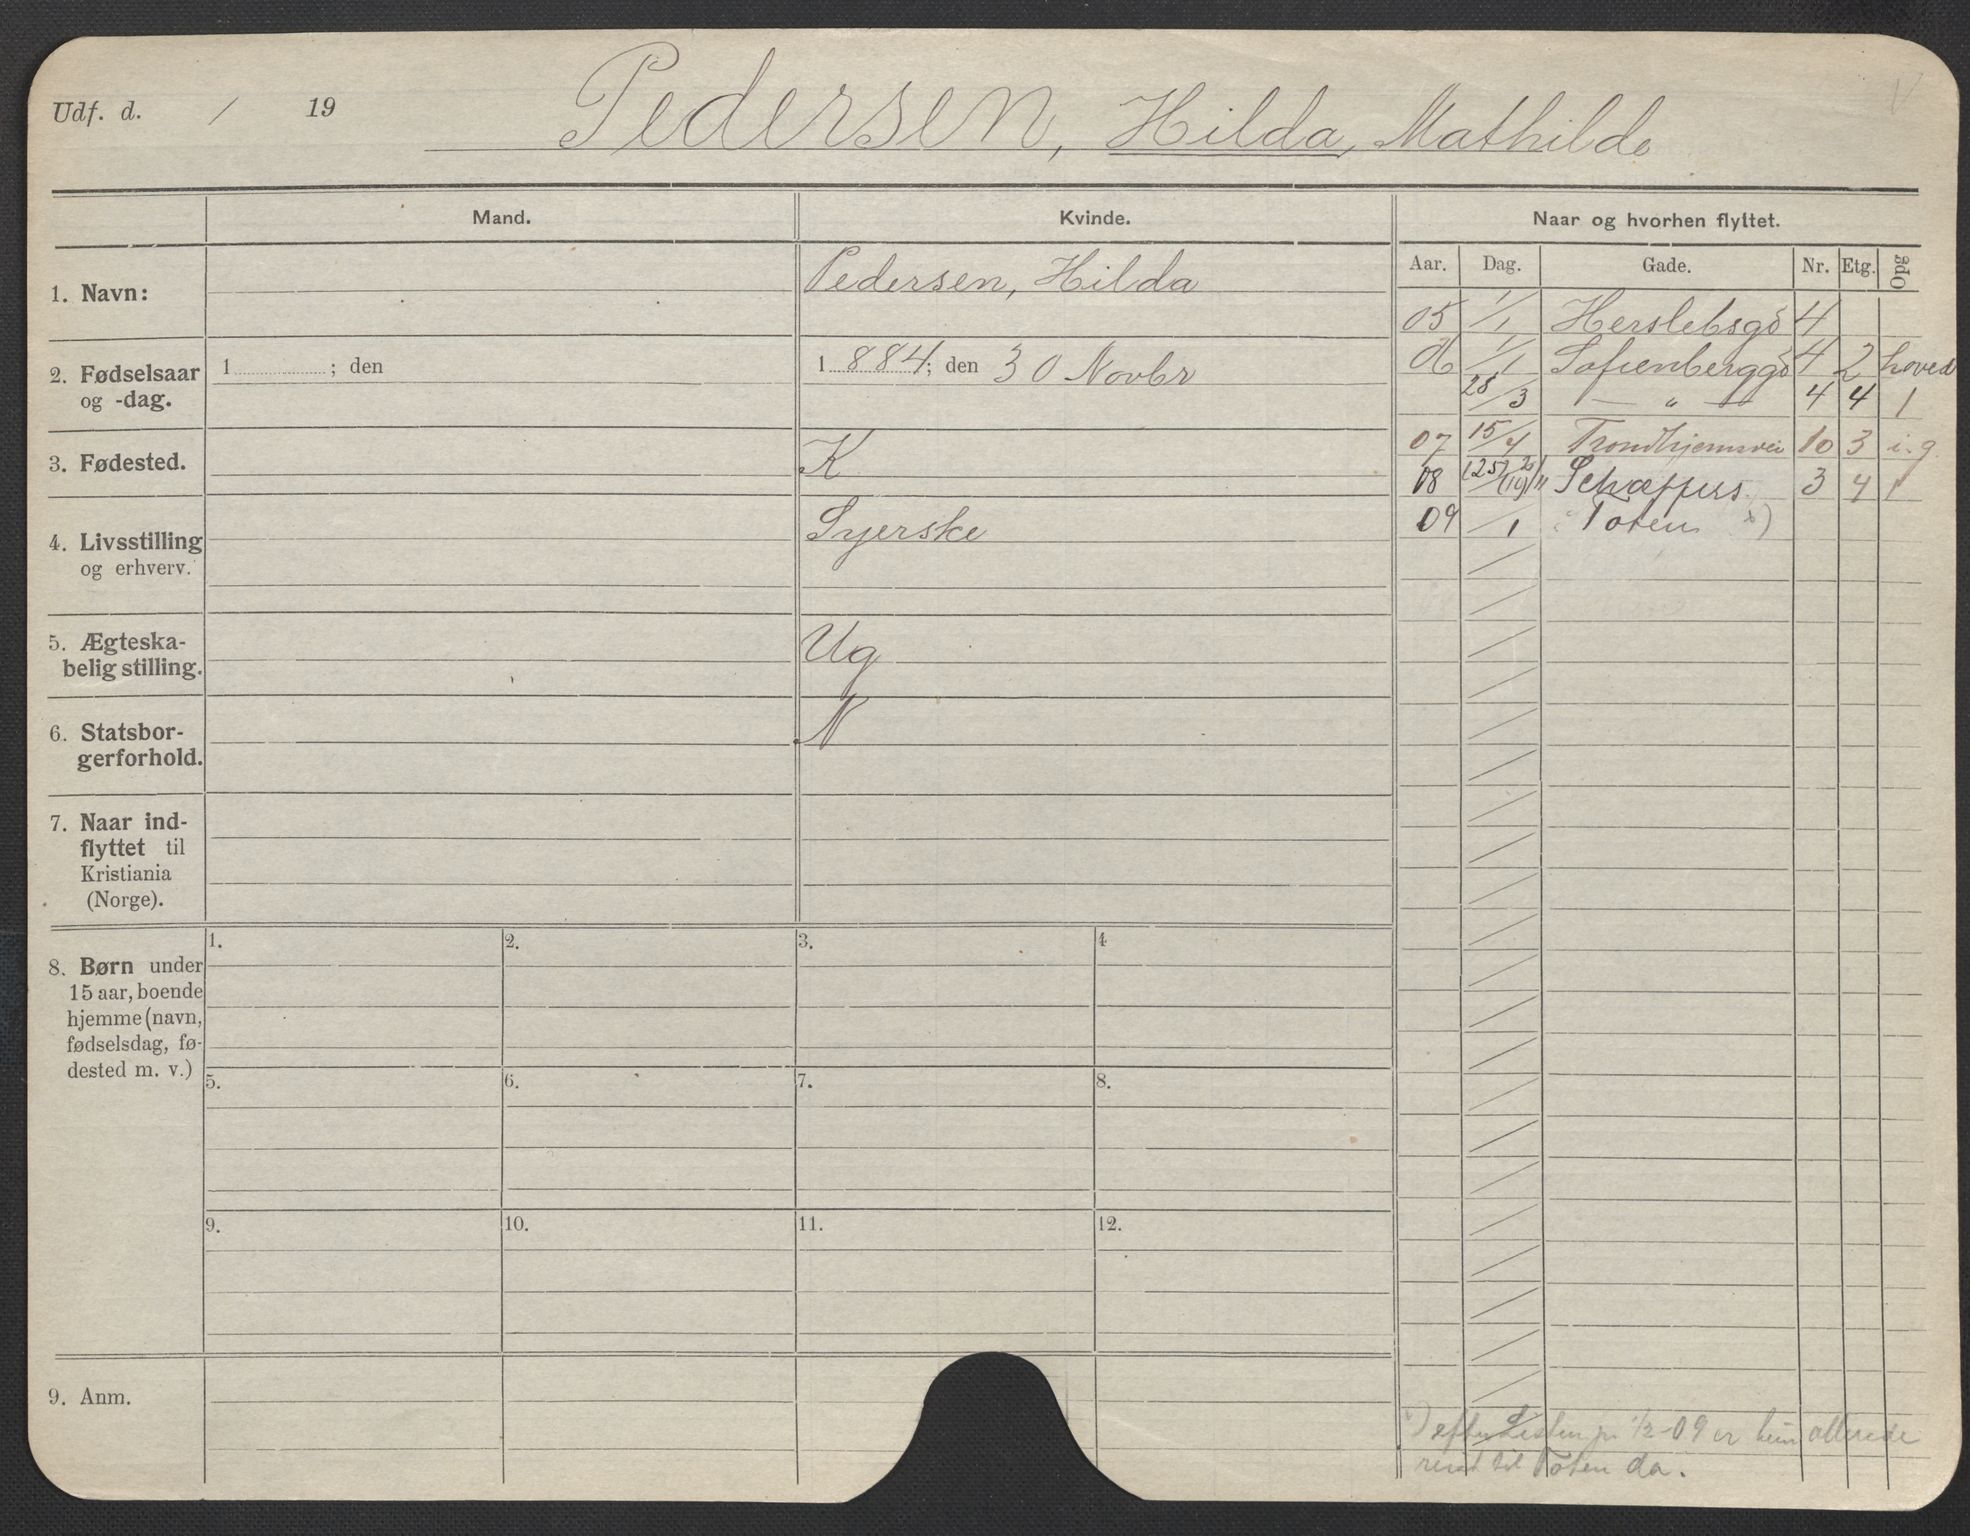 Udf. d. / 19
Pedersen, Hilda, Mathilde
Mand. Kvinde. Naar og hvorhen flyttet.
Aar. Dag. Gade. Nr. Etg. Opg
1. Navn:
Pedersen, Hilda
2. Fødselsaar
og -dag.
1 ; den
1884; den 30 Novbr
3. Fødested.
K
4. Livsstilling
og erhverv.
Syerske
5. Ægteska-
belig stilling.
Ug
6. Statsbor-
gerforhold.
N
7. Naar ind-
flyttet til
Kristiania
(Norge).
8. Børn under
15 aar, boende
hjemme (navn,
fødselsdag, fø-
dested m. v.)
1. 2. 3. 4
5. 6. 7. 8.
9. 10. 11. 12.
9. Anm.
05 1/1 Herslebsgd 4
06 1/1 Sofienberggd 4 2 hoved
28/3 — „ — 4 4 1
07 15/4 Trondhjemsvei 10 3 i. g.
08 Schæffers 3 4 1
09 /1 Toten x)
x) efter Listen pr 1/2-09 er hun allerede
reist til Toten da.